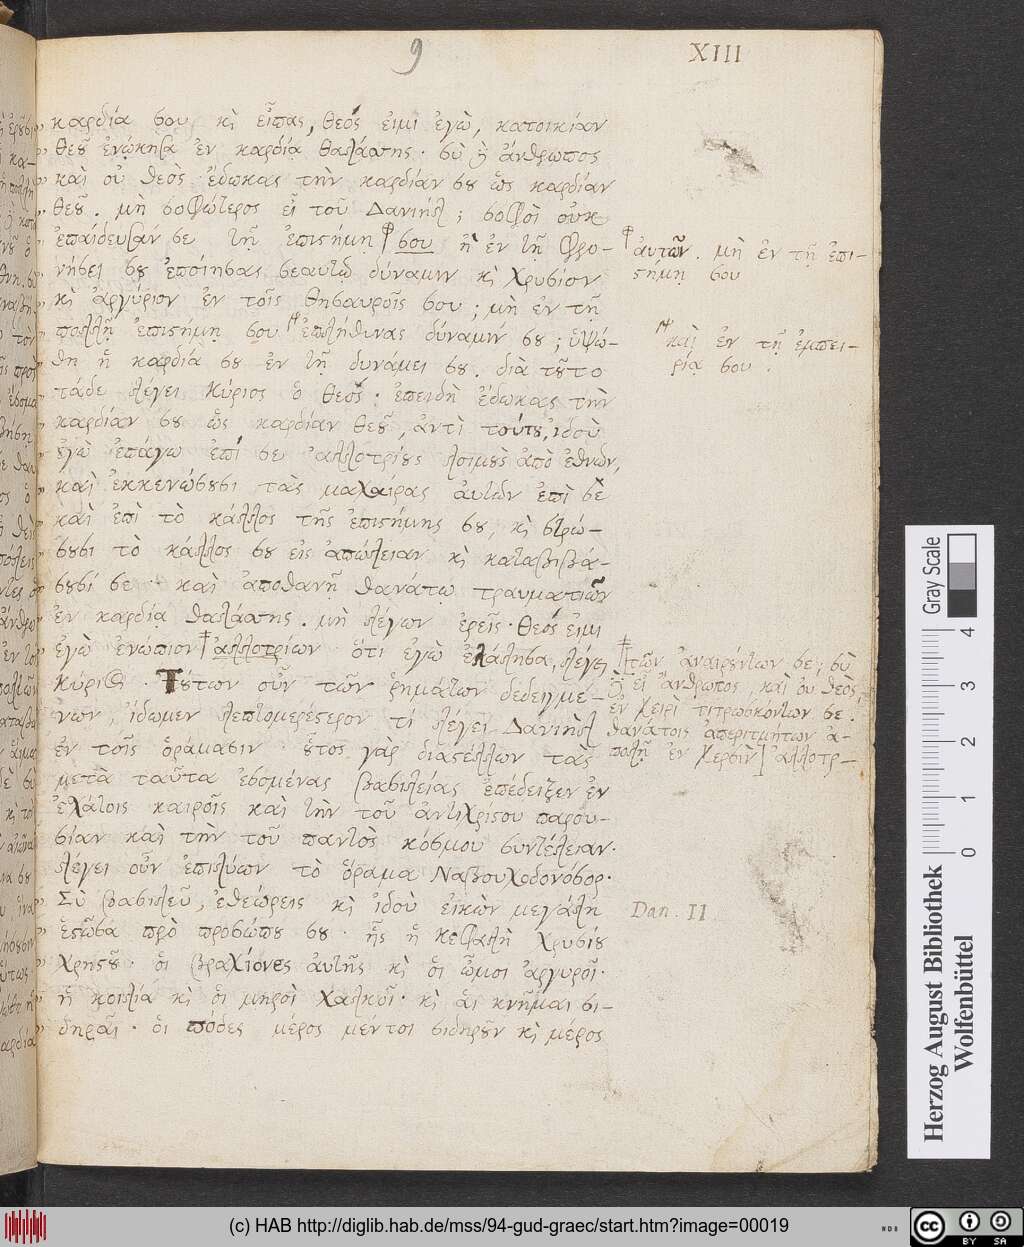 9
XIII
καρδία σου κὶ εἶπας, θεός εἰμι ἐγὼ, κατοικίαν
θεοῦ ἐνῴκησα ἐν καρδίᾳ θαλάσσης· σὺ δὲ ἄνθρωπος
καὶ οὐ θεὸς ἔδωκας τὴν καρδίαν σου ὡς καρδίαν
θεοῦ. μὴ σοφώτερος εἶ τοῦ Δανιήλ; σοφοὶ οὐκ
ἐπαίδευσάν σε τῇ ἐπιστήμῃ σου ἢ ἐν τῇ φρο-
νήσει σου ἐποίησας σεαυτῷ δύναμιν κὶ χρυσίον
κὶ ἀργύριον ἐν τοῖς θησαυροῖς σου; μὴ ἐν τῇ
πολλῇ ἐπιστήμῃ σου ἐπλήθυνας δύναμίν σου; ὑψώ-
θη ἡ καρδία σου ἐν τῇ δυνάμει σου. διὰ τοῦτο
τάδε λέγει Κύριος ὁ θεός· ἐπειδὴ ἔδωκας τὴν
καρδίαν σου ὡς καρδίαν θεοῦ, ἀντὶ τούτου, ἰδοὺ
ἐγὼ ἐπάγω ἐπί σε ἀλλοτρίους λοιμοὺς ἀπὸ ἐθνῶν,
καὶ ἐκκενώσουσι τὰς μαχαίρας αὐτῶν ἐπὶ σὲ
καὶ ἐπὶ τὸ κάλλος τῆς ἐπιστήμης σου, κὶ στρώ-
σουσι τὸ κάλλος σου εἰς ἀπώλειαν κὶ καταβιβά-
σουσί σε· καὶ ἀποθανῇ θανάτῳ τραυματιῶν
ἐν καρδίᾳ θαλάσσης. μὴ λέγων ἐρεῖς· θεός εἰμι
ἐγὼ ἐνώπιον ἀλλοτρίων· ὅτι ἐγὼ ἐλάλησα, λέγει
Κύριος. Τούτων οὖν τῶν ῥημάτων δεδειγμέ-
νων, ἴδωμεν λεπτομερέστερον τί λέγει Δανιὴλ
ἐν τοῖς ὁράμασιν· οὗτος γὰρ διαστέλλων τὰς
μετὰ ταῦτα ἐσομένας βασιλείας ἐπέδειξεν ἐν
ἐσχάτοις καιροῖς καὶ τὴν τοῦ ἀντιχρίστου παρου-
σίαν καὶ τὴν τοῦ παντὸς κόσμου συντέλειαν.
λέγει οὖν ἐπιλύων τὸ ὅραμα Ναβουχοδονόσορ·
Σὺ βασιλεῦ, ἐθεώρεις κὶ ἰδοὺ εἰκὼν μεγάλη
ἑστῶσα πρὸ προσώπου σου· ἧς ἡ κεφαλὴ χρυσίου
χρηστοῦ· οἱ βραχίονες αὐτῆς κὶ οἱ ὦμοι ἀργυροῖ·
ἡ κοιλία κὶ οἱ μηροὶ χαλκοῖ· κὶ αἱ κνῆμαι σι-
δηραῖ· οἱ πόδες μέρος μέν τοι σιδηροῦν κὶ μέρος
αὐτῶν. μὴ ἐν τῇ ἐπι-
στήμῃ σου
καὶ ἐν τῇ ἐμπει-
ρίᾳ σου.
τῶν ἀναιρούντων σε; σὺ
δὲ εἶ ἄνθρωπος, καὶ οὐ θεὸς
ἐν χειρὶ τιτρωσκόντων σε.
θανάτοις ἀπεριτμήτων ἀ-
πολῇ ἐν χερσὶν] ἀλλοτρ-
Dan. II.
Gray Scale
0 1 2 3 4
Herzog August Bibliothek
Wolfenbüttel
(c) HAB http://diglib.hab.de/mss/94-gud-graec/start.htm?image=00019
cc BY SA